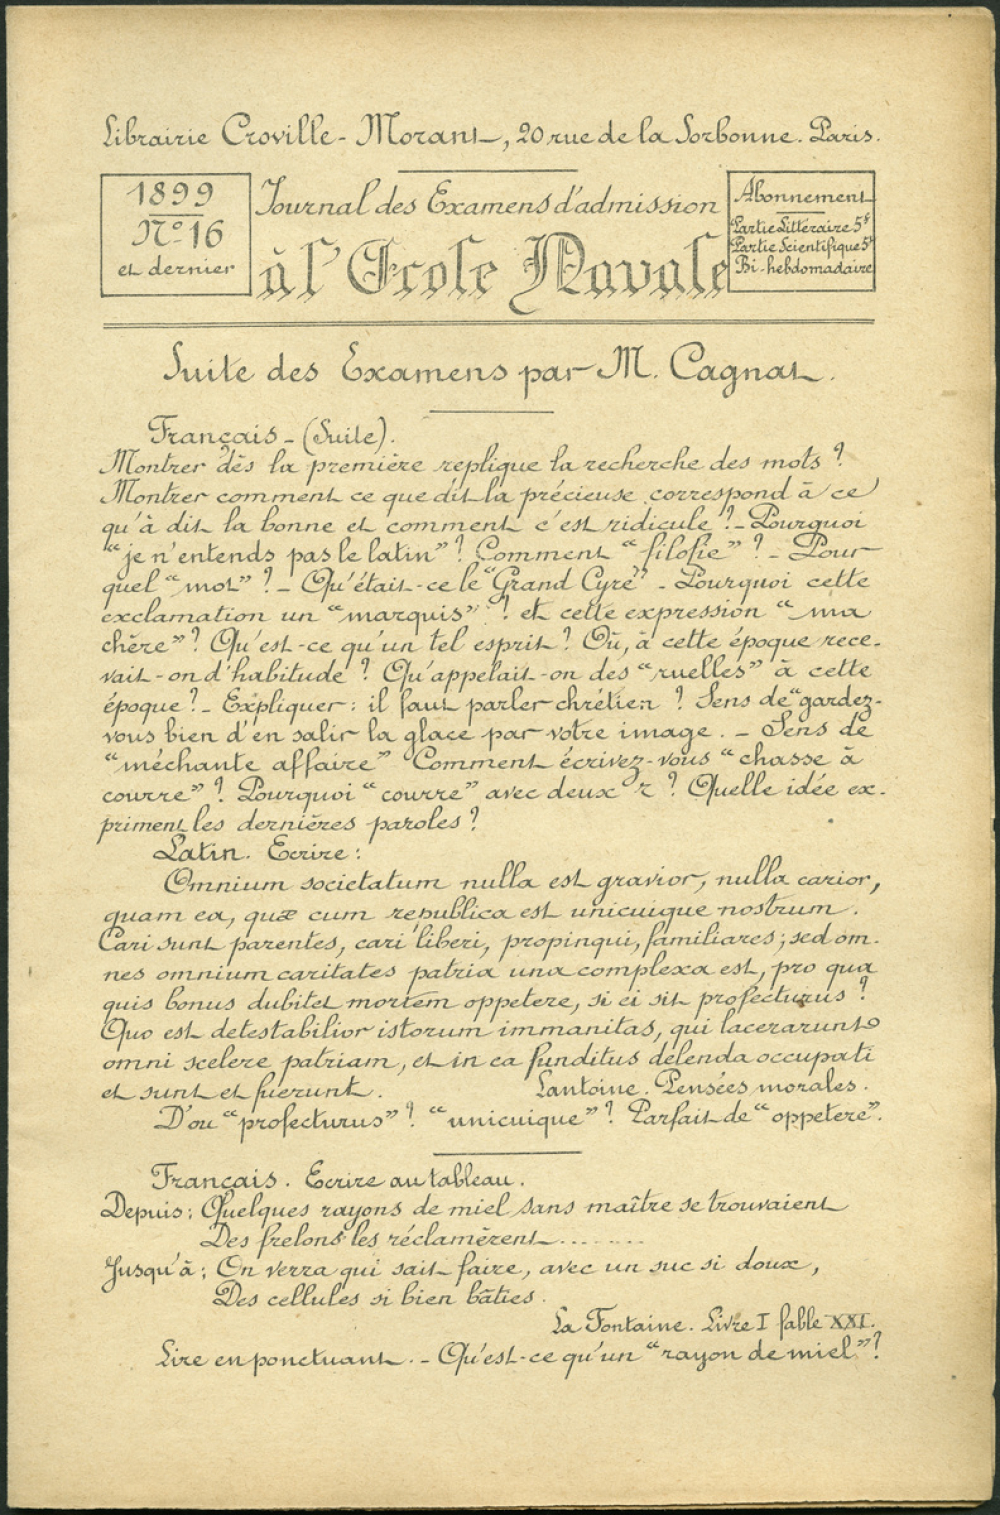 Librairie Croville-Morant, 20 rue de la Sorbonne. Paris.
1899
N° 16
et dernier
Journal des Examens d'admission
à l'Ecole Navale
Abonnement
Partie Littéraire 5f
Partie Scientifique 5f
Bi-hebdomadaire
Suite des Examens par M. Cagnat.
Français - (Suite).
Montrer dès la première replique la recherche des mots ?
Montrer comment ce que dit la précieuse correspond à ce
qu'à dit la bonne et comment c'est ridicule ? - Pourquoi
"je n'entends pas le latin" ? Comment "filofie" ? - Pour
quel "mot" ? - Qu'était-ce le "Grand Cyre" ? - Pourquoi cette
exclamation un "marquis" ? et cette expression "ma
chère" ? Qu'est-ce qu'un tel esprit ? Où, à cette époque rece-
vait-on d'habitude ? Qu'appelait-on des "ruelles" à cette
époque ? - Expliquer : il faut parler chrétien ? Sens de "gardez-
vous bien d'en salir la glace par votre image. - Sens de
"méchante affaire" Comment écrivez-vous "chasse à
courre" ? Pourquoi "courre" avec deux r ? Quelle idée ex-
priment les dernières paroles ?
Latin. Ecrire :
Omnium societatum nulla est gravior, nulla carior,
quam ea, quæ cum republica est unicuique nostrum.
Cari sunt parentes, cari liberi, propinqui, familiares ; sed om-
nes omnium caritates patria una complexa est, pro qua
quis bonus dubitet mortem oppetere, si ei sit profecturus ?
Quo est detestabilior istorum immanitas, qui lacerarunt
omni scelere patriam, et in ea funditus delenda occupati
et sunt et fuerunt. Lantoine. Pensées morales.
D'ou "profecturus" ? "unicuique" ? Parfait de "oppetere".
Français. Ecrire au tableau.
Depuis : Quelques rayons de miel sans maître se trouvaient
Des frelons les réclamèrent ........
Jusqu'à : On verra qui sait faire, avec un suc si doux,
Des cellules si bien bâties.
La Fontaine. Livre I fable XXI.
Lire en ponctuant. - Qu'est-ce qu'un "rayon de miel" ?